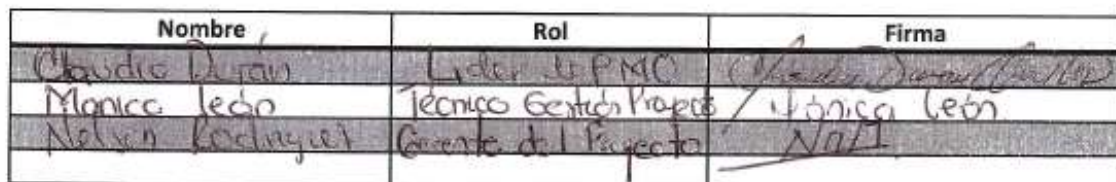 Nombre Rol Firma
Claudio Durán Lider de PMO
Monica León Técnico Gestión Proyectos Mónica León
Nelson Rodriguez Gerente del Proyecto